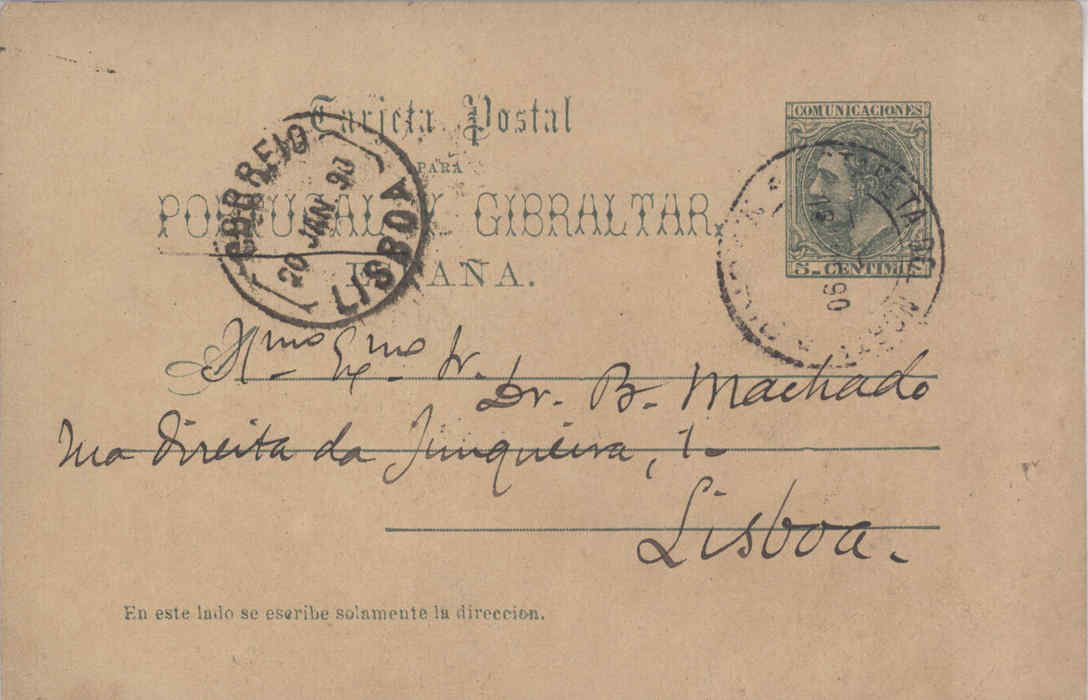 Tarjeta Postal
PARA
PORTUGAL Y GIBRALTAR.
ESPAÑA.
COMUNICACIONES
5 CENTIMOS
CORREIO
20 JAN 90
LISBOA
ESTAFETA DEL
NORTE
90
Illmo Exmo Sr.
Dr. B. Machado
rua Direita da Junqueira, 1-
Lisboa.
En este lado se escribe solamente la direccion.